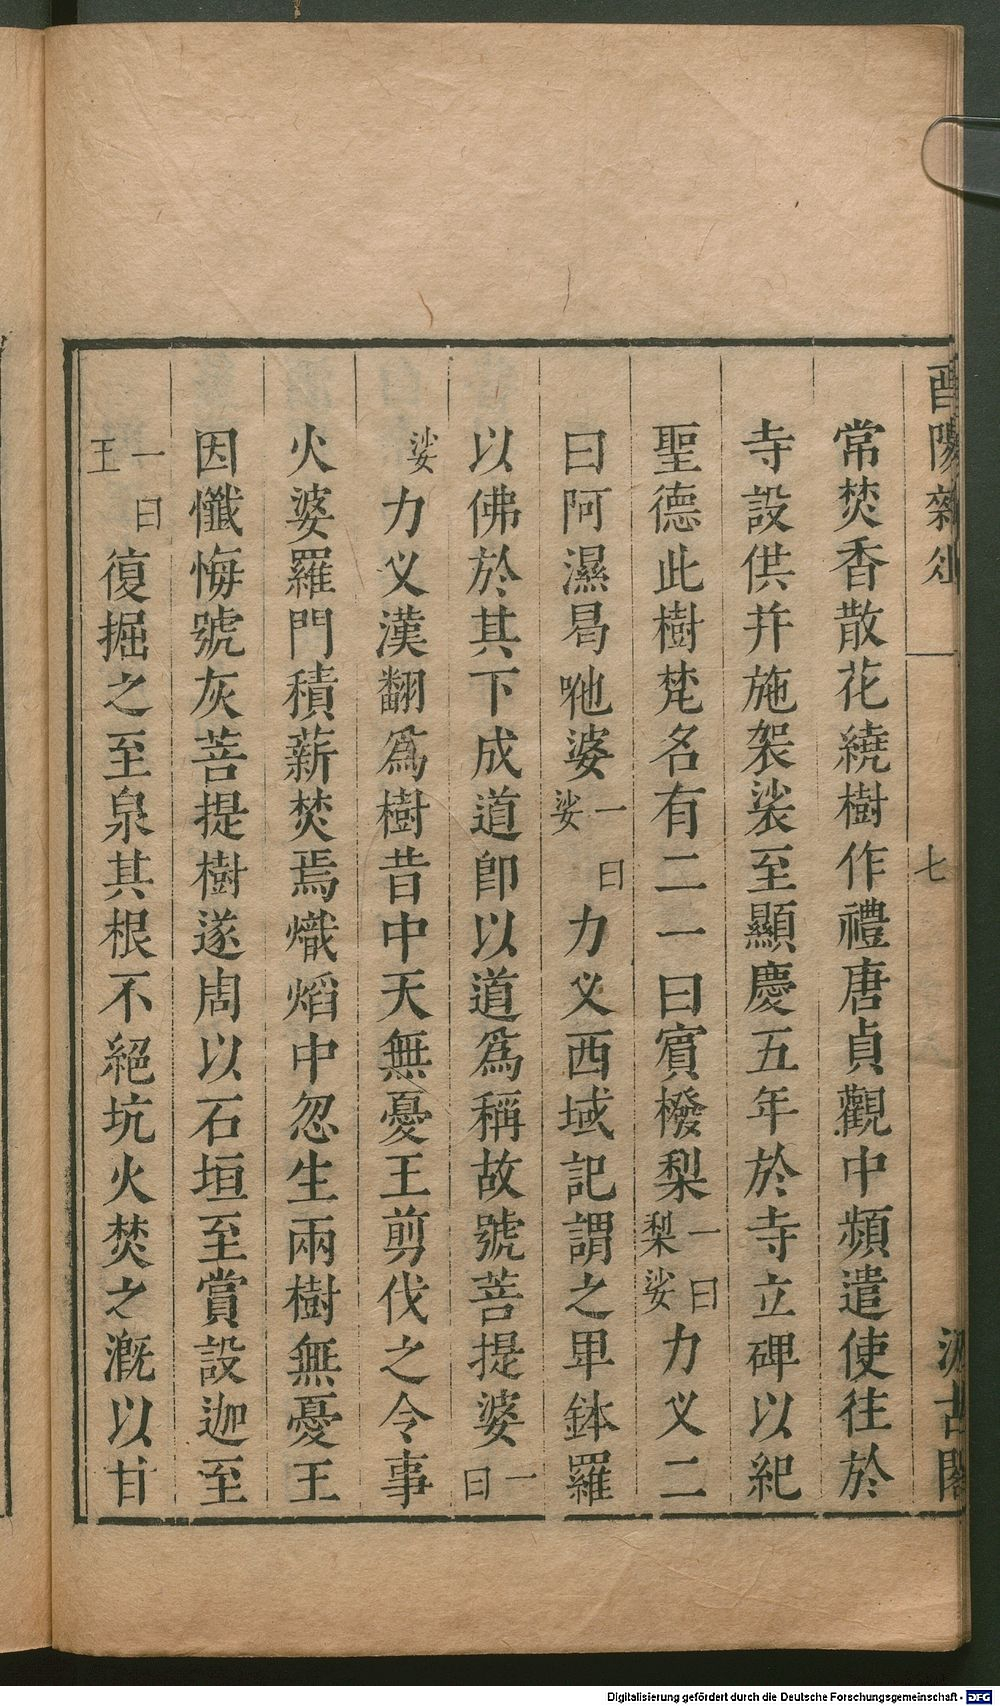 酉陽雜俎
七
汲古閣
常焚香散花繞樹作禮唐貞觀中頻遣使往於
寺設供并施袈裟至顯慶五年於寺立碑以紀
聖德此樹梵名有二一曰賓撥梨一曰梨娑力义二
曰阿濕曷咃婆一曰娑力义西域記謂之卑鉢羅
以佛於其下成道卽以道爲稱故號菩提婆一曰
娑力义漢翻爲樹昔中天無憂王剪伐之令事
火婆羅門積薪焚焉熾焰中忽生兩樹無憂王
因懺悔號灰菩提樹遂周以石垣至賞設迦至
一曰王復掘之至泉其根不絕坑火焚之漑以甘
Digitalisierung gefördert durch die Deutsche Forschungsgemeinschaft - DFG